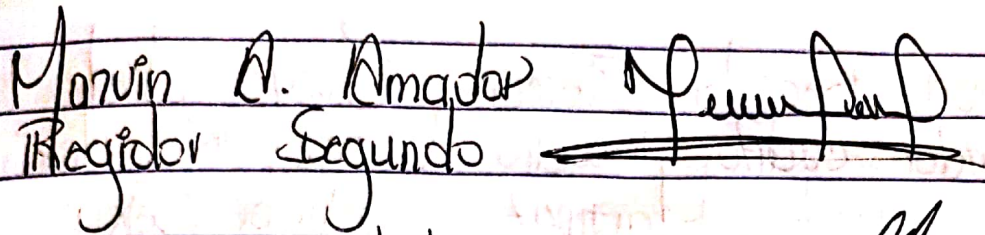 Marvin A. Amador
Regidor Segundo